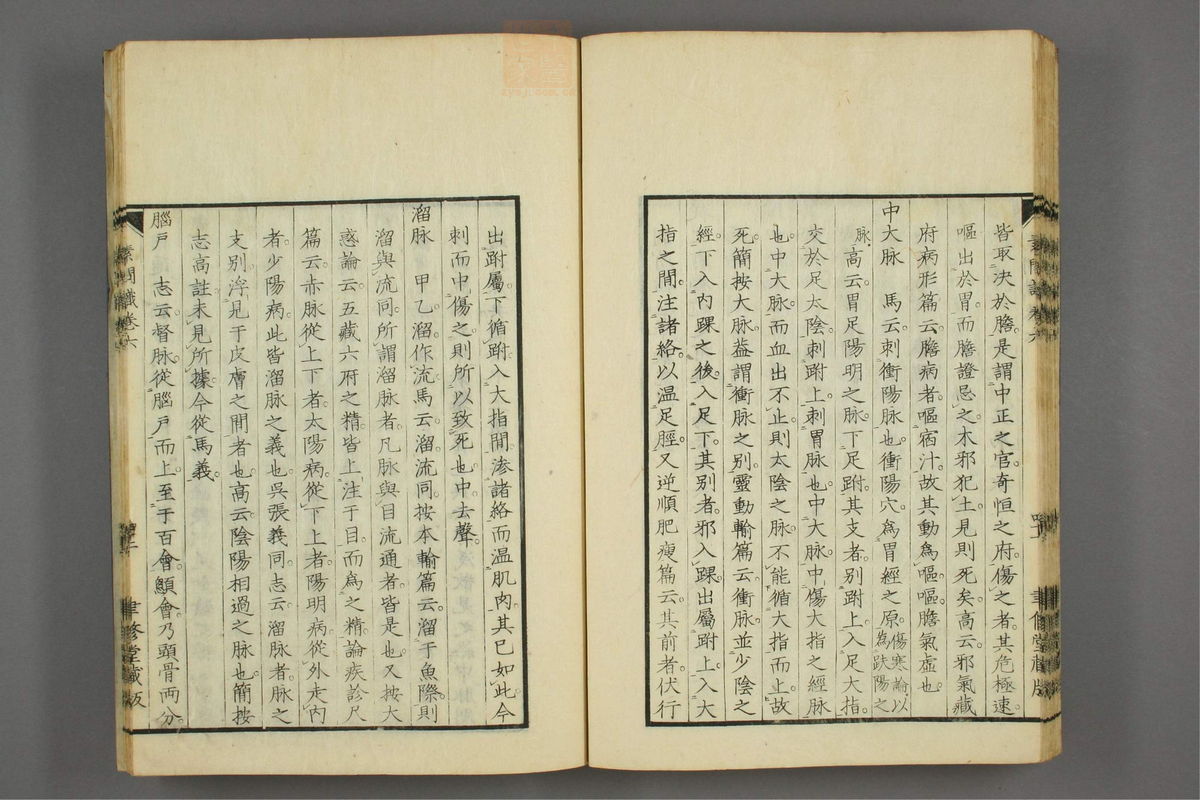 皆取決於膽是謂中正之官奇恒之府傷之者其危極速
嘔出於胃而膽證忌之木邪犯土見則死矣高云邪氣藏
府病形篇云膽病者嘔宿汁故其動為嘔嘔膽氣虛也
中大脉　馬云刺衝陽脉也衝陽穴為胃經之原傷寒論以為趺陽之
脉高云胃足陽明之脉下足跗其支者別跗上入足大指
交於足太陰刺跗上刺胃脉也中大脉中傷大指之經脉
也中大脉而血出不止則太陰之脉不能循大指而上故
死簡按大脉葢謂衝脉之別靈動輸篇云衝脉並少陰之
經下入內踝之後入足下其別者邪入踝出屬跗上入大
指之間注諸絡以温足脛又逆順肥瘦篇云其前者伏行
出跗屬下循跗入大指間滲諸絡而温肌肉其已如此今
刺而中傷之則所以致死也中去聲
溜脉　甲乙溜作流馬云溜流同按本輸篇云溜于魚際則
溜與流同所謂溜脉者凡脉與目流通者皆是也又按大
惑論云五藏六府之精皆上注于目而為之精論疾診尺
篇云赤脉從上下者太陽病從下上者陽明病從外走內
者少陽病此皆溜脉之義也吳張義同志云溜脉者脉之
支別浮見于皮膚之間者也高云陰陽相過之脉也簡按
志高註未見所據今從馬義
腦戶　志云督脉從腦戶而上至于百會顖會乃頭骨兩分
素問識卷六
聿修堂藏版